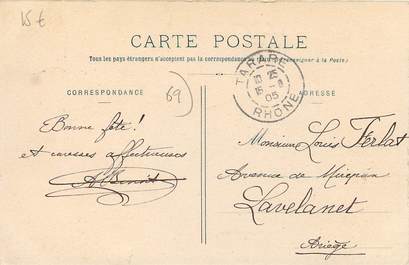 15 €
CARTE POSTALE
Tous les pays étrangers n'acceptent pas la
(Se renseigner à la Poste)
TARARE
15 25
15 - 8
05
RHÔNE
CORRESPONDANCE
ADRESSE
69
Bonne fête!
et caresses affectueuses
ABenoit
Monsieur Louis Ferlat
Avenue de Mirepoix
Lavelanet
Ariège